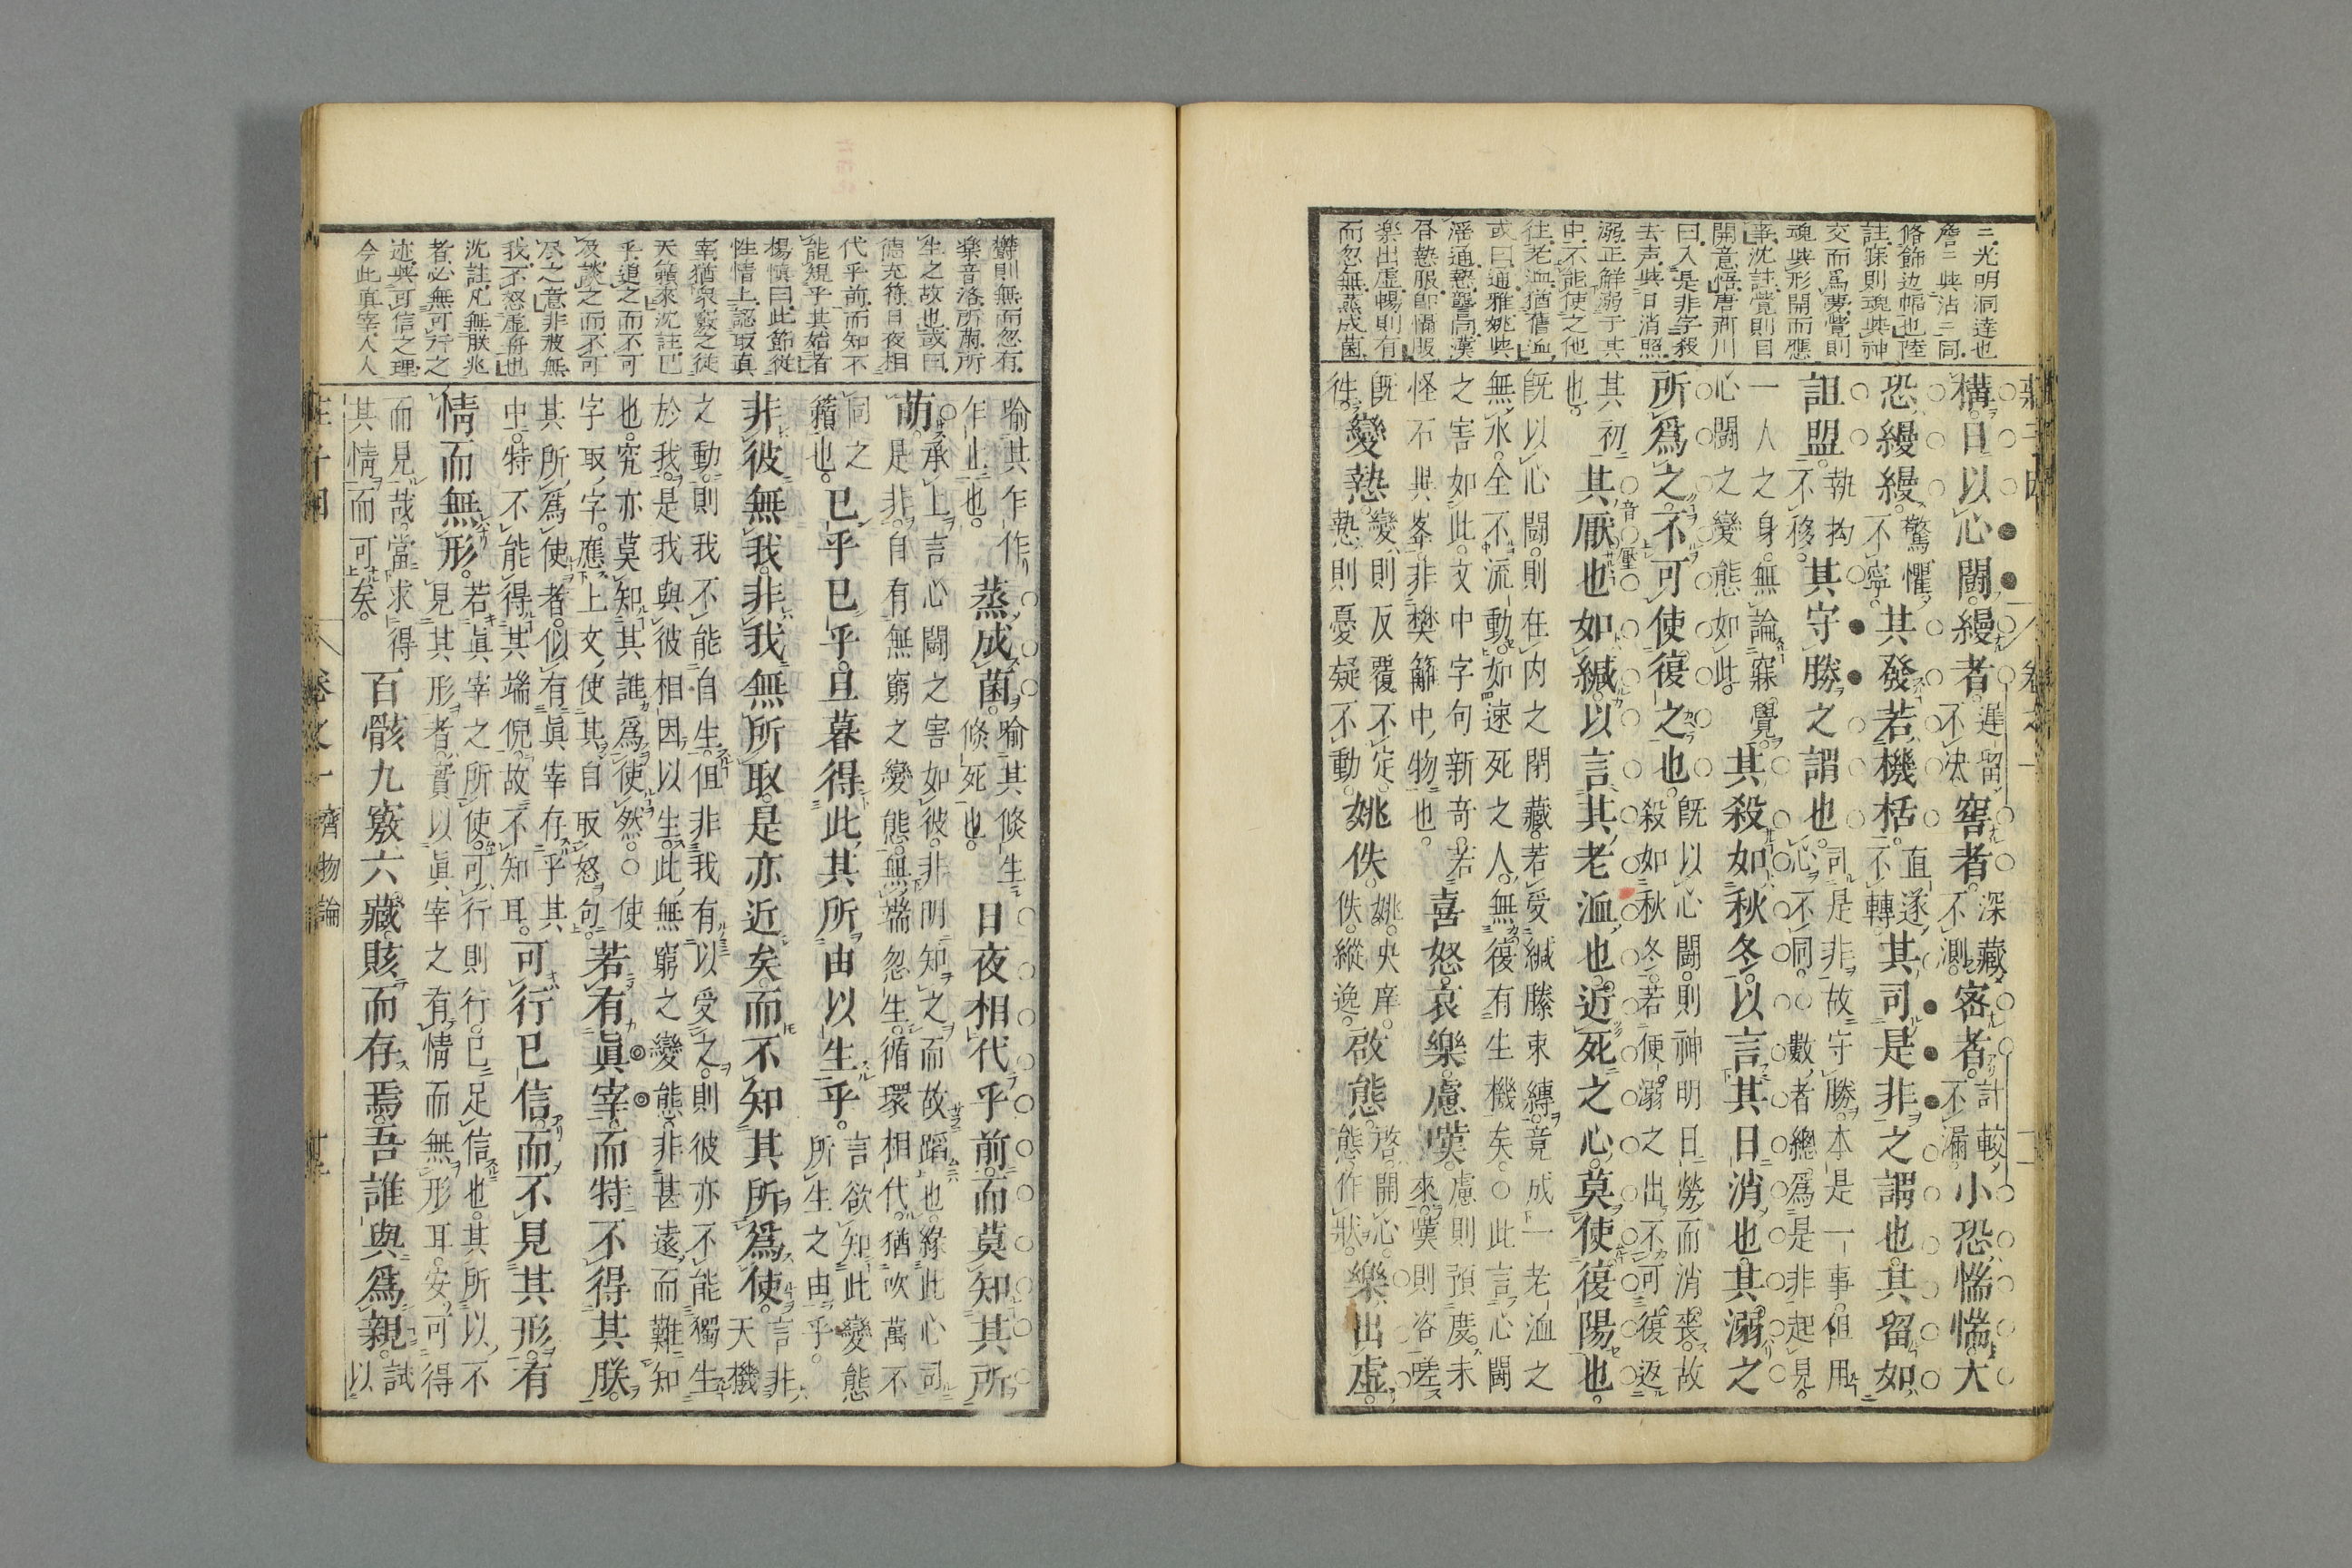 二光明洞達也
詹二與沾二同
脩飾边幅也陸
註寐則魂與神
交而爲夢覺則
魂與形開而應
事沈註覺則目
開意悟唐荊川
曰入是非字殺
去声與日消照
溺正觧溺于其
中不能使之他
往老洫猶舊洫
或曰通雅姚姎
滛通慹讋同漢
昏慹服即慴服
楽出虚暢則有
而忽無蒸成菌
構日以心鬪縵者遲留不決窖者深藏不測密者計較不漏小恐惴惴大
恐縵縵驚懼不寧其發若機栝直遂不轉其司是非之謂也其留如
詛盟執拘不移其守勝之謂也司是非故守勝本是一事但用心不同○數者總爲是非起見
一人之身無論寐覺心鬪之變態如此其殺如秋冬以言其日消也其溺之
所爲之不可使復之也既以心鬪則神明日勞而消喪故殺如秋冬若便溺之出不可復返
其初也其厭也如緘以言其老洫也近死之心莫使復陽也
既以心鬪則在内之閉藏若受緘縢束縛竟成一老洫之
無水全不流動如速死之人無復有生機矣○此言心鬪
之害如此文中字句新奇若怪石與峯非樊籬中物也喜怒哀樂慮嘆慮則預度未來嘆則咨嗟
既往變慹變則反覆不定慹則憂疑不動姚佚姚央庠佚縱逸啟態啓開心態作狀樂出虚
欝則無而忽有
楽音洛所萠所
生之故也或曰
德充符日夜相
代乎前而知不
能規乎其始者
楊慎曰此節從
性情上認取真
宰猶衆竅之徒
天籟來沈註已
乎追之而不可
及談之而不可
尽之意非彼無
我不怒虚脊也
沈註凡無朕兆
者必無可行之
迹與可信之理
今此眞宰人人
喻其乍作乍止也蒸成菌喻其倐生倐死也日夜相代乎前而莫知其所
萌○承上言心鬪之害如彼非明知之而故蹈也緣此心司是非自有無窮之變態無端忽生循環相代猶吹萬不
同之籟也已乎已乎旦暮得此其所由以生乎言欲知此變態所生之由乎
非彼無我非我無所取是亦近矣而不知其所爲使言非天機
之動則我不能自生但非我有以受之則彼亦不能獨生
於我是我與彼相因以生此無窮之變態非甚遠而難知
也究亦莫知其誰爲使然○使字取字應上文使其自取怒句若有眞宰而特不得其朕
其所爲使者似有眞宰存乎其中特不能得其端倪故不知耳可行已信而不見其形有
情而無形若眞宰之所使可行則行已足信也其所以不見其形者實以眞宰之有情而無形耳安可得
而見哉當求得其情而可矣百骸九竅六藏賅而存焉吾誰與爲親試以
莊子因 卷之一 齊物論